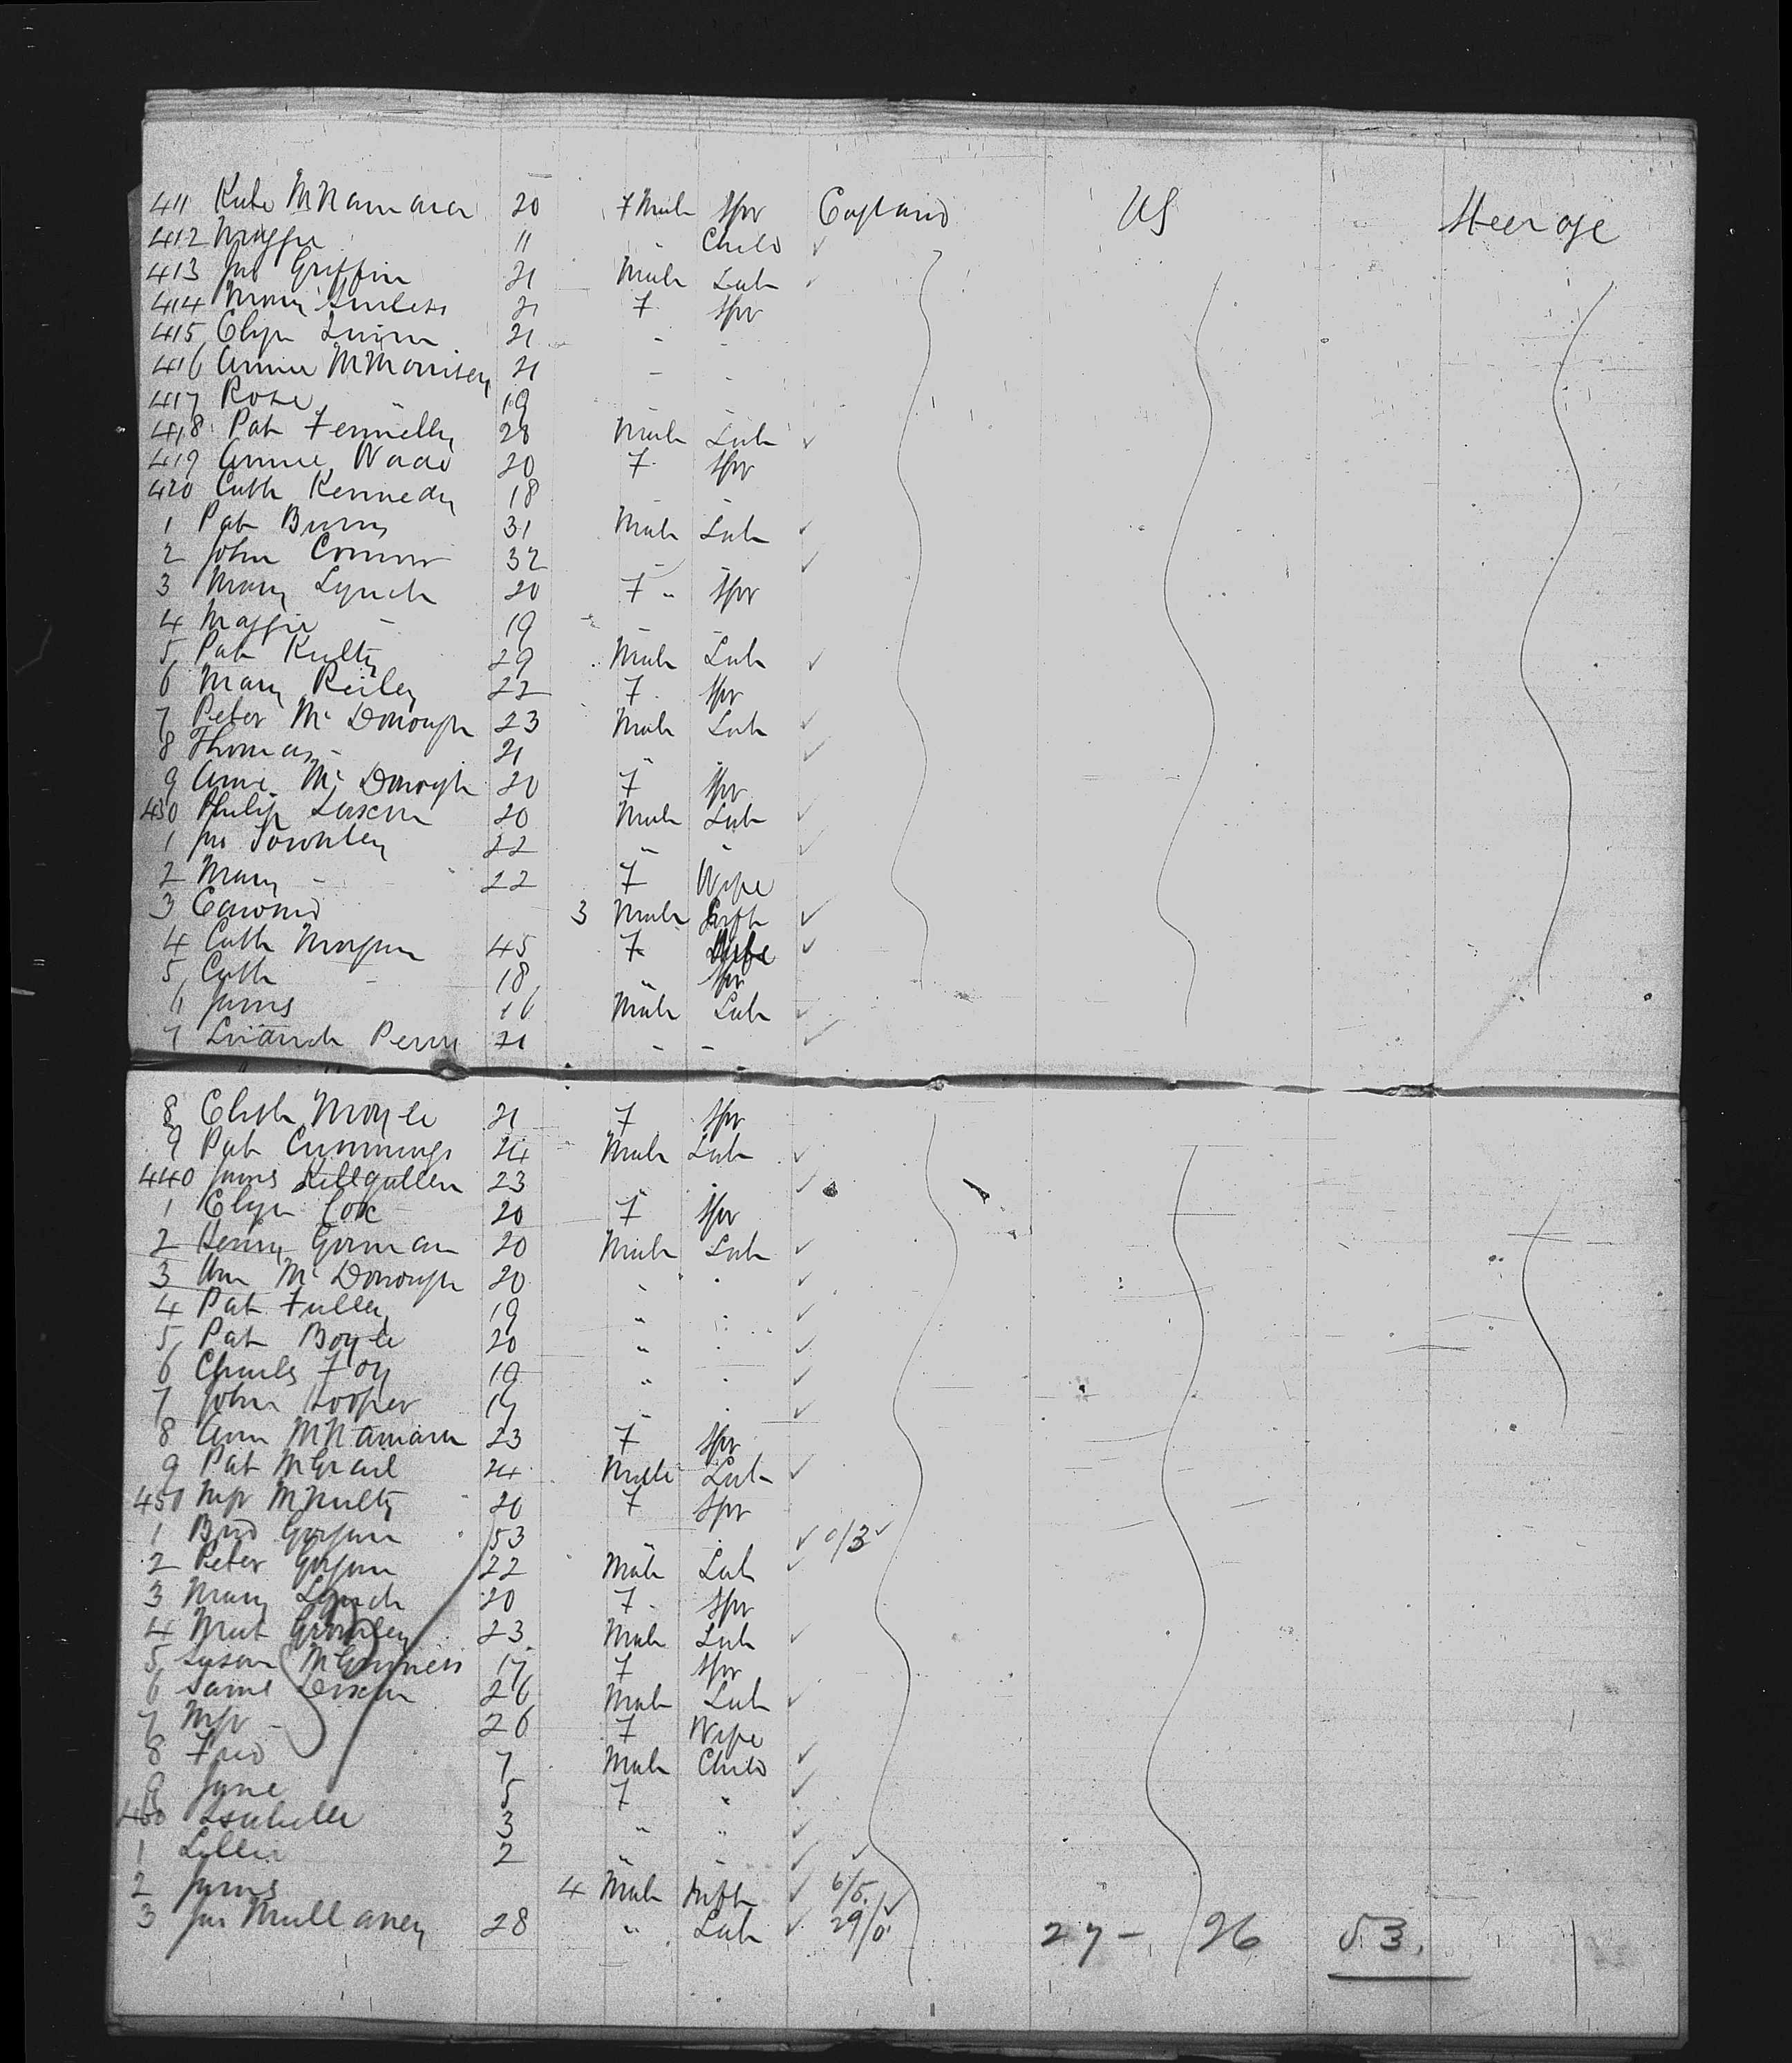 411 Kate McNamara 20 F Male Spr England US Steerage
412 Maggie 11 " Child
413 Jas Griffin 21 Male Lab
414 Mary 21 F Spr
415 Eliza Quinn 21 - -
416 Annie McMorrisey 21 - -
417 Rose " 19 - -
418 Pat Fennelly 28 Male Lab
419 Annie Wade 20 F Spr
420 Cath Kennedy 18 - -
1 Pat Burns 31 Male Lab
2 John Connor 32 - -
3 Mary Lynch 20 F " Spr
4 Maggie - 19 - -
5 Pat Kulty 29 Male Lab
6 Mary Reiley 22 F Spr
7 Peter Mc Donough 23 Male Lab
8 Thomas - 21 " "
9 Anne Mc Donough 20 F Spr
430 Philip 20 Male Lab
1 Jas Townley 22 " "
2 Mary - 22 F Wife
3 Edward 3 Male Inft
4 Cath Morgan 45 F Wife
5 Cath - 18 " Spr
6 James 16 Male Lab
7 Perry 21 - -
8 Elizth Moyle 21 F Spr
9 Pat Cummings 24 Male Lab
440 James Killgallen 23 " "
1 Eliza Cox 20 F Spr
2 Henry Gorman 20 Male Lab
3 Wm Mc Donough 20 " "
4 Pat Fulley 19 " "
5 Pat Boyle 20 " "
6 Charles Foy 19 " "
7 John Hooper 19 " "
8 Ann McNamara 23 F Spr
9 Pat McGrail 24 Male Lab
450 Mgt McNulty 20 F Spr
1 Brid 53 " " 0/3
2 Peter 22 Male Lab
3 Mary Lynch 20 F Spr
4 Mat 23 Male Lab
5 Susan McGuiness 17 F Spr
6 Saml 26 Male Lab
7 Mgt - 26 F Wife
8 Fred 7 Male Child
9 Jane 5 F "
460 Isabella 3 " "
1 Lillie 2 " "
2 James 4 Male Inft 6/5
3 Jas Mullaney 28 " Lab 29/0 27 - 26 53.